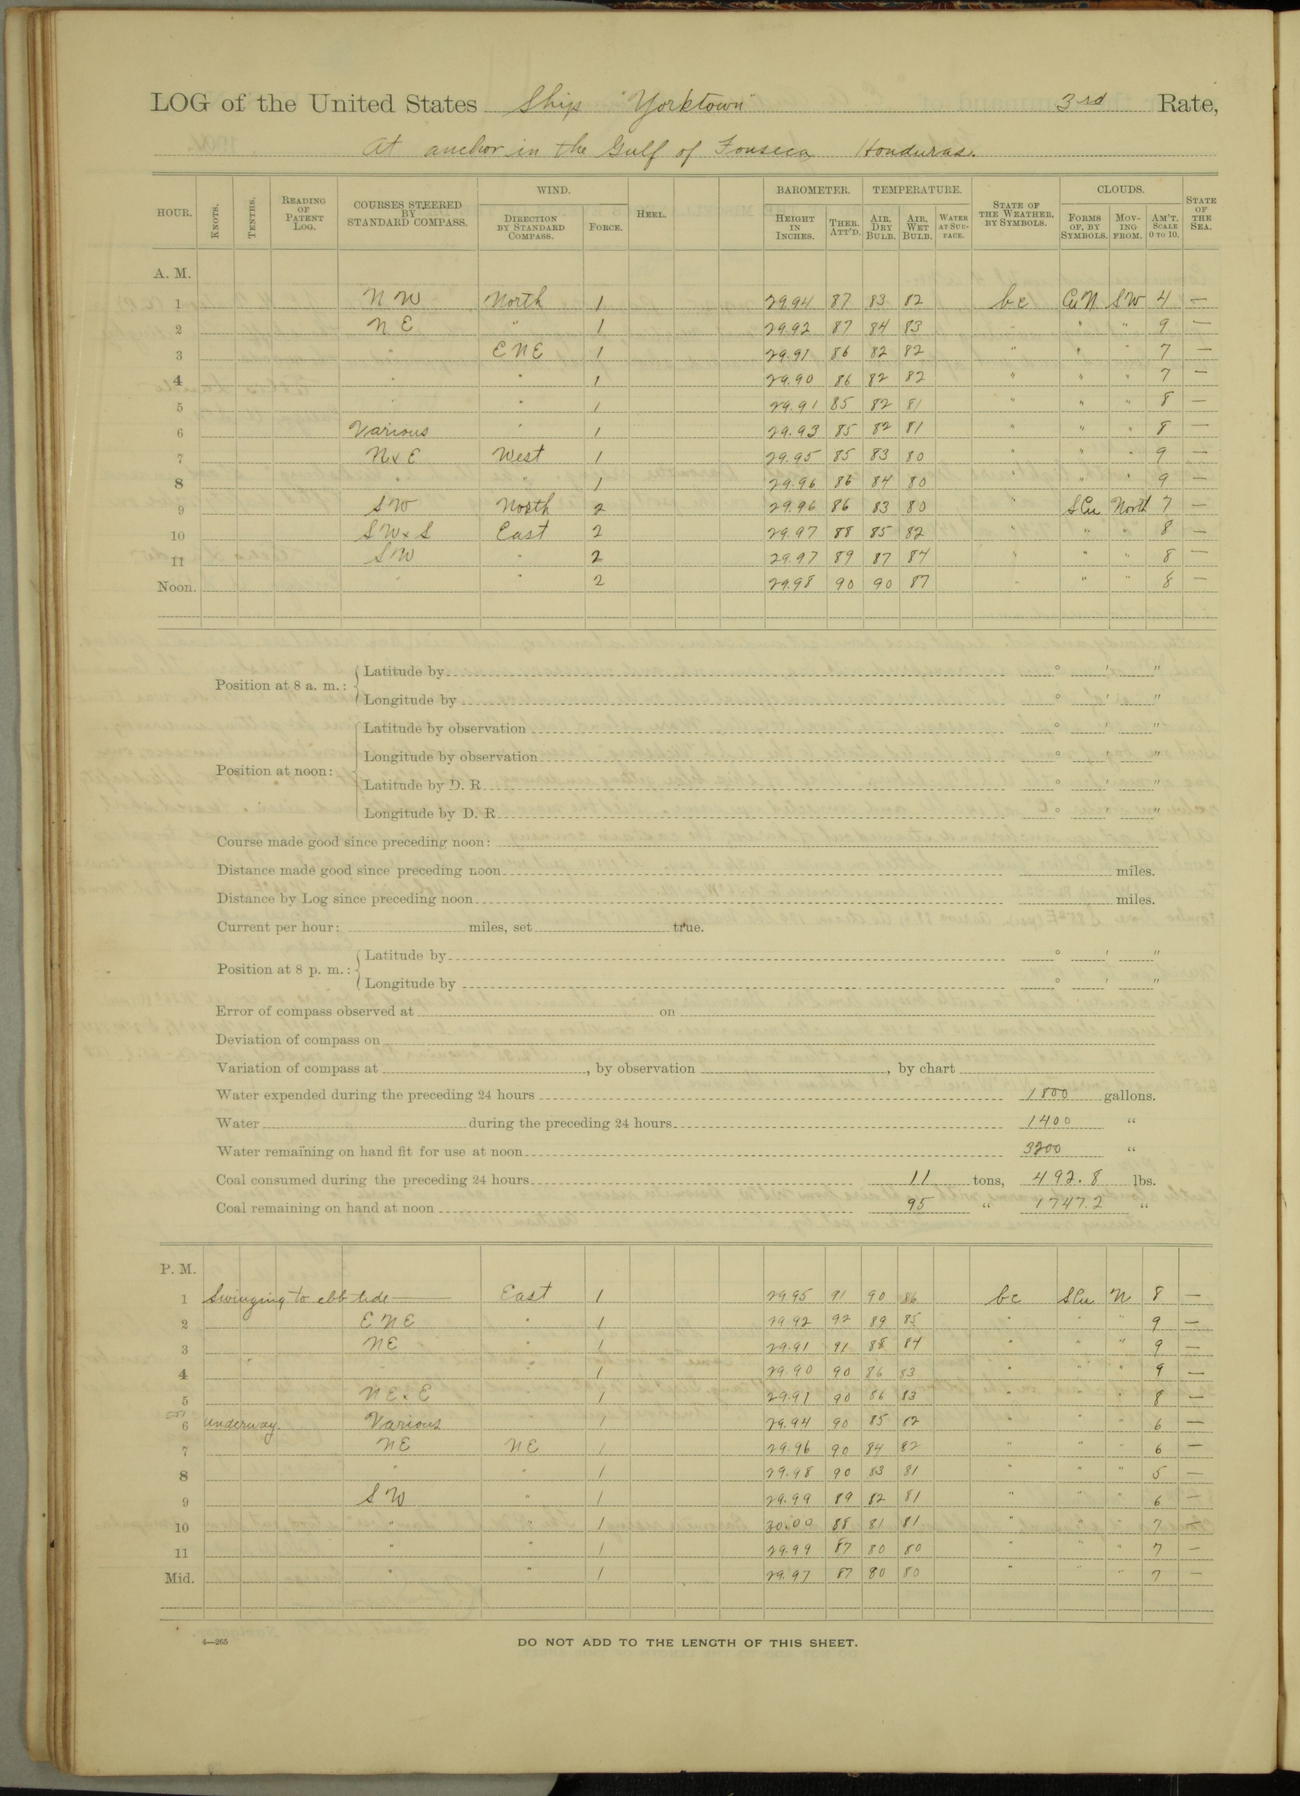 LOG of the United States Ship "Yorktown" 3rd Rate,
At anchor in the Gulf of Fonseca Honduras.
HOUR. KNOTS. TENTHS. READING OF PATENT LOG. COURSES STEERED BY STANDARD COMPASS. WIND. DIRECTION BY STANDARD COMPASS. FORCE. HEEL. BAROMETER. HEIGHT IN INCHES. THER. ATT'D. TEMPERATURE. AIR, DRY BULB. AIR, WET BULB. WATER AT SURFACE. STATE OF THE WEATHER, BY SYMBOLS. CLOUDS. FORMS OF, BY SYMBOLS. MOVING FROM. AM'T. SCALE 0 TO 10. STATE OF THE SEA.
A. M.
1 NW North 1 29.94 87 83 82 bc CuN SW 4 —
2 NE " 1 29.92 87 84 83 " " " 9 —
3 " ENE 1 29.91 86 82 82 " " " 7 —
4 " " 1 29.90 86 82 82 " " " 7 —
5 " " 1 29.91 85 82 81 " " " 8 —
6 Various " 1 29.93 85 82 81 " " " 8 —
7 NxE West 1 29.95 85 83 80 " " " 9 —
8 " " 1 29.96 86 84 80 " " " 9 —
9 SW North 2 29.96 86 83 80 " SCu North 7 —
10 SWxS East 2 29.97 88 85 82 " " " 8 —
11 SW " 2 29.97 89 87 84 " " " 8 —
Noon. " " 2 29.98 90 90 87 " " " 8 —
Position at 8 a. m.: Latitude by ° ' "
Longitude by ° ' "
Position at noon: Latitude by observation ° ' "
Longitude by observation ° ' "
Latitude by D. R. ° ' "
Longitude by D. R. ° ' "
Course made good since preceding noon:
Distance made good since preceding noon miles.
Distance by Log since preceding noon miles.
Current per hour: miles, set true.
Position at 8 p. m.: Latitude by ° ' "
Longitude by ° ' "
Error of compass observed at on
Deviation of compass on
Variation of compass at , by observation , by chart
Water expended during the preceding 24 hours 1800 gallons.
Water during the preceding 24 hours 1400 "
Water remaining on hand fit for use at noon 3200 "
Coal consumed during the preceding 24 hours 11 tons, 492.8 lbs.
Coal remaining on hand at noon 95 " 1747.2 "
P. M.
1 Swinging to ebb tide — East 1 29.95 91 90 86 bc SCu N 8 —
2 ENE " 1 29.92 92 89 85 " " " 9 —
3 NE " 1 29.91 91 88 84 " " " 9 —
4 " " 1 29.90 90 86 83 " " " 9 —
5 NExE " 1 29.91 90 86 83 " " " 8 —
6 underway. Various " 1 29.94 90 85 82 " " " 6 —
7 NE NE 1 29.96 90 84 82 " " " 6 —
8 " " 1 29.98 90 83 81 " " " 5 —
9 SW " 1 29.99 89 82 81 " " " 6 —
10 " " 1 30.00 88 81 81 " " " 7 —
11 " " 1 29.99 87 80 80 " " " 7 —
Mid. " " 1 29.97 87 80 80 " " " 7 —
4—265 DO NOT ADD TO THE LENGTH OF THIS SHEET.